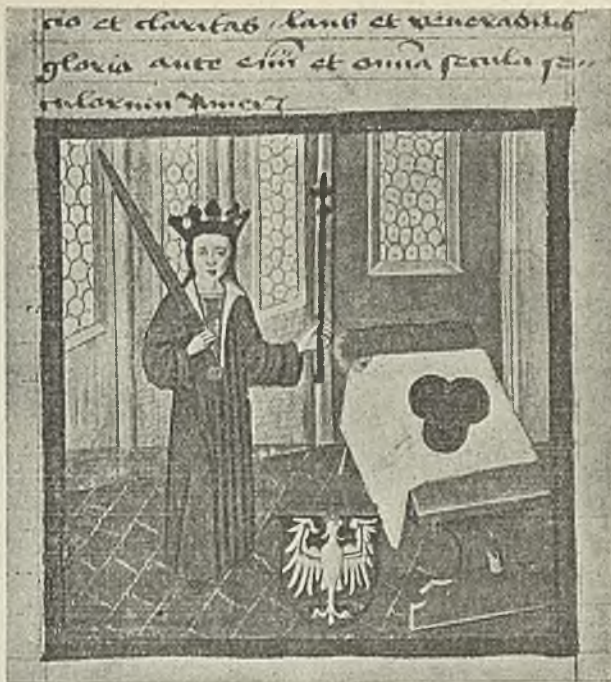 cio et claritas, laus et venerabilis
gloria ante et omnia secula se=
culorum Amen